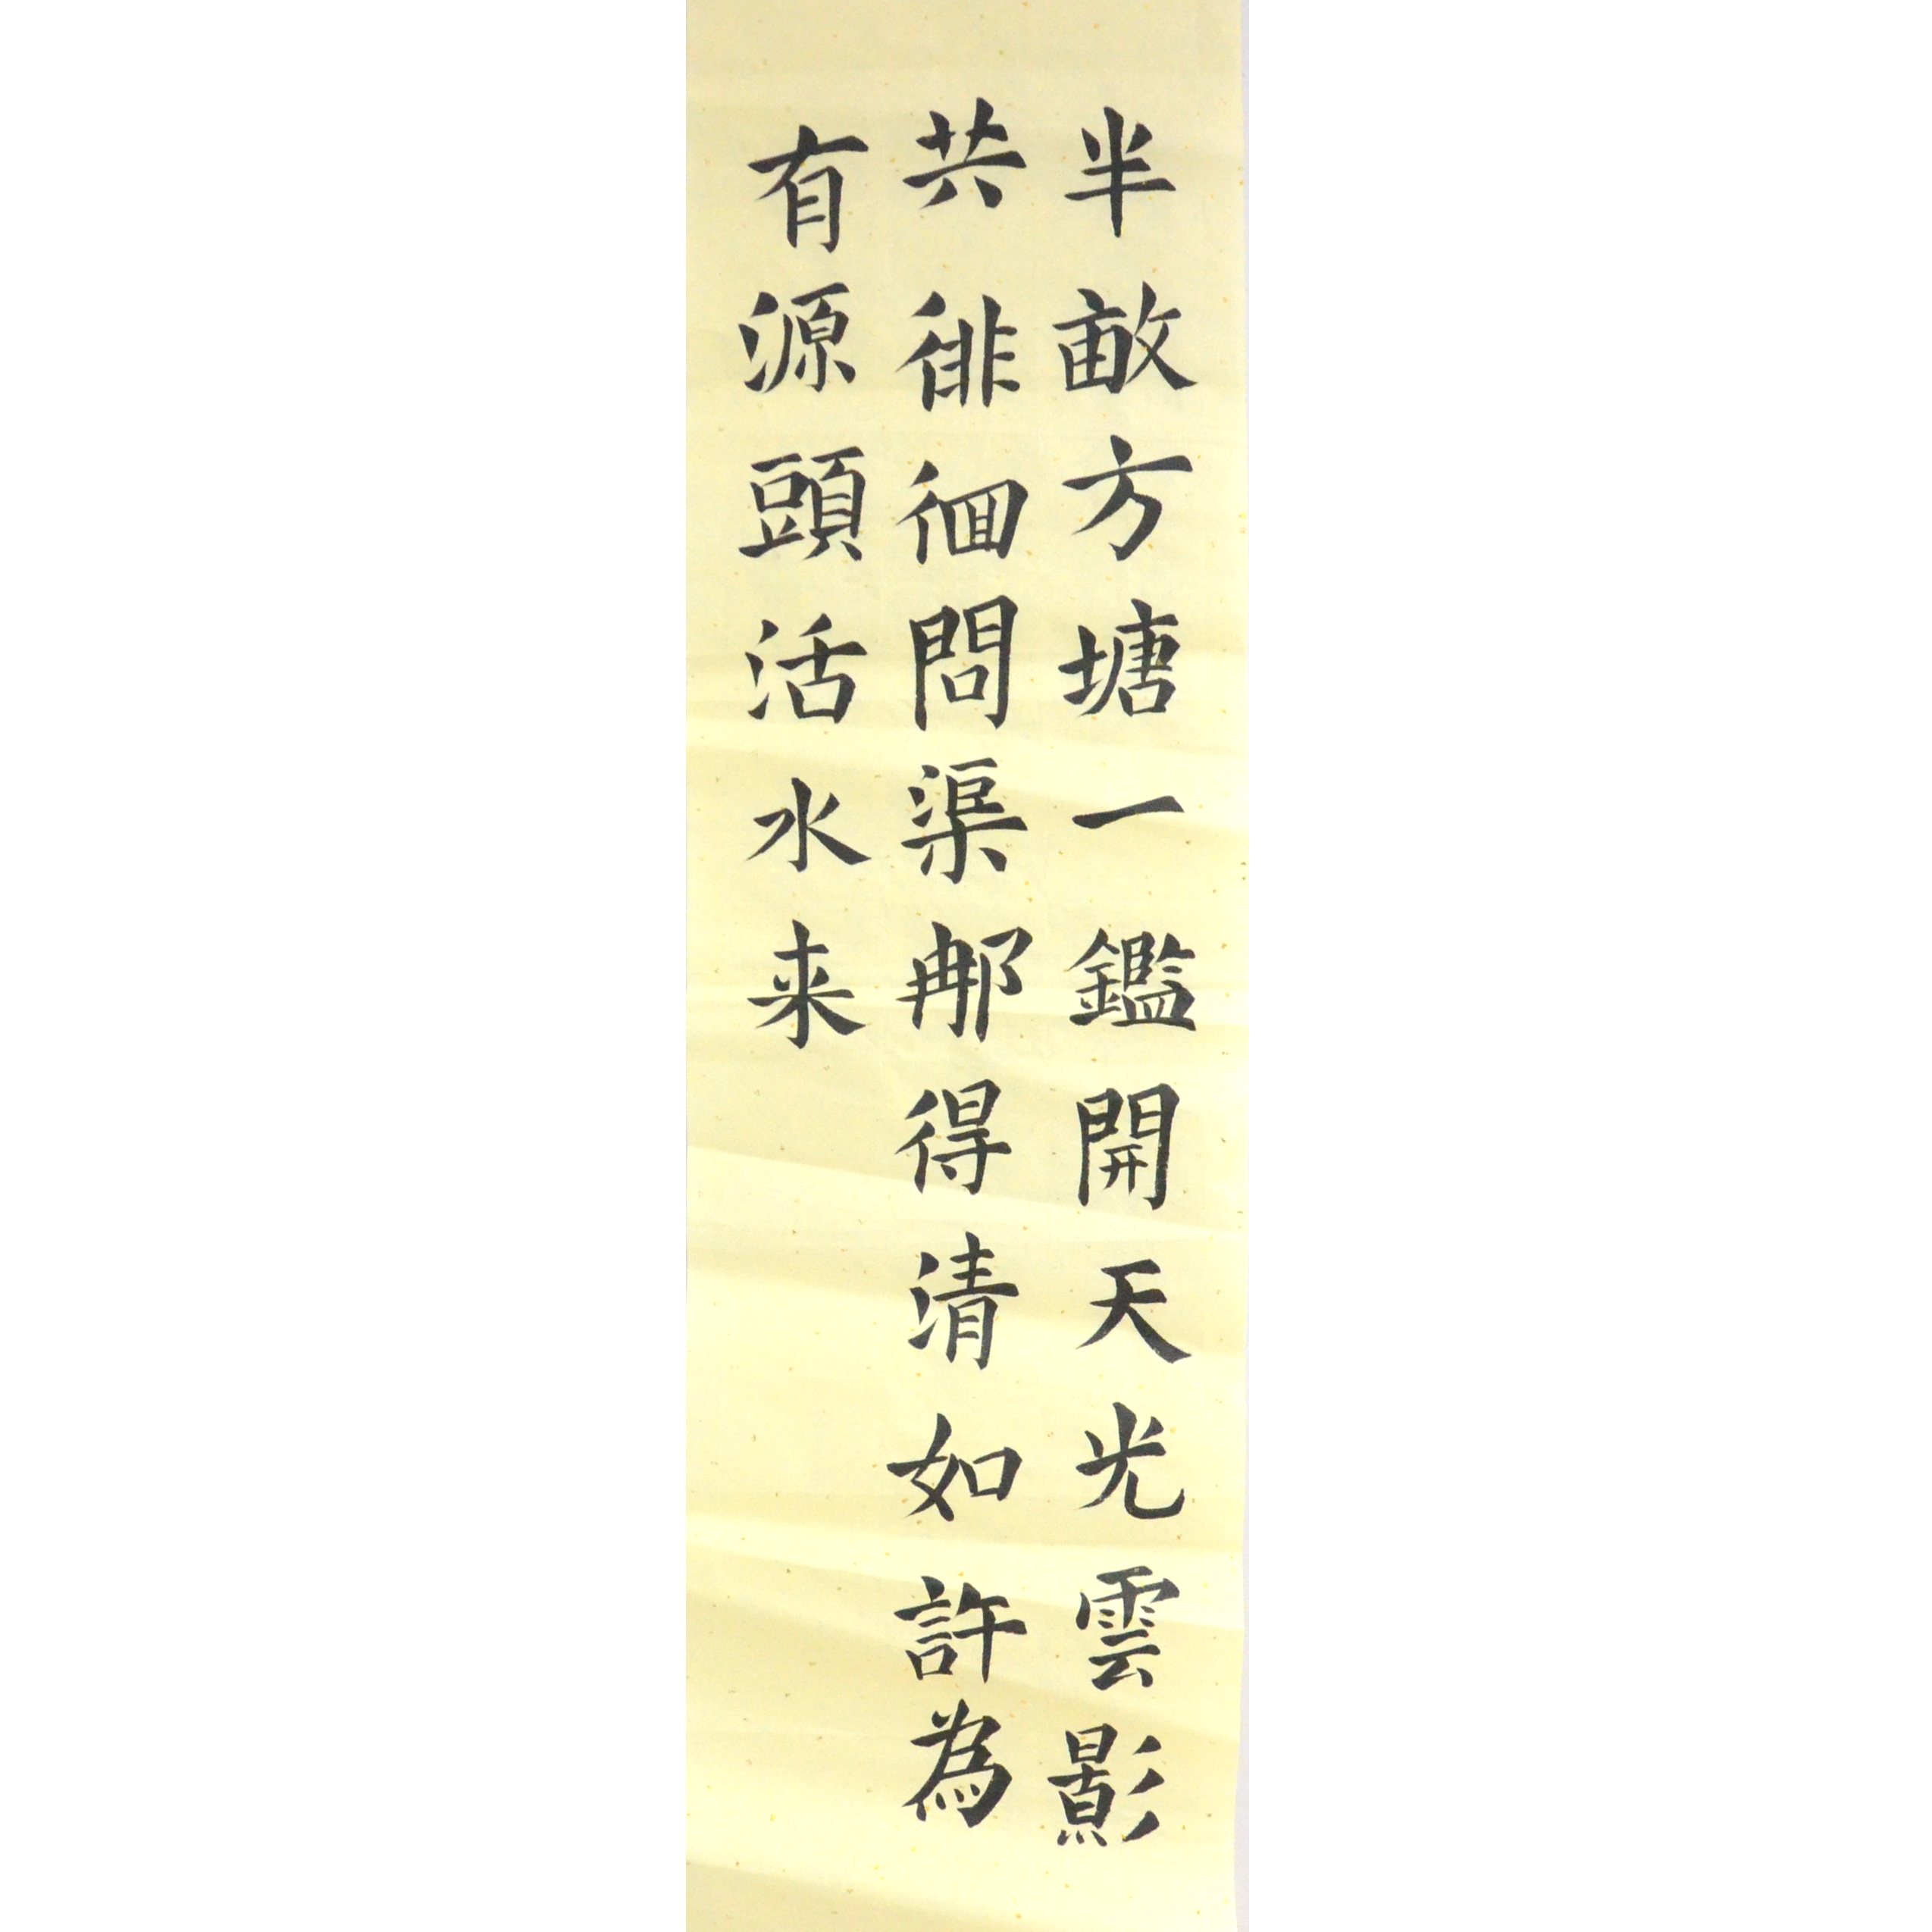 半畝方塘一鑑開天光雲影
共徘徊問渠那得清如許為
有源頭活水来